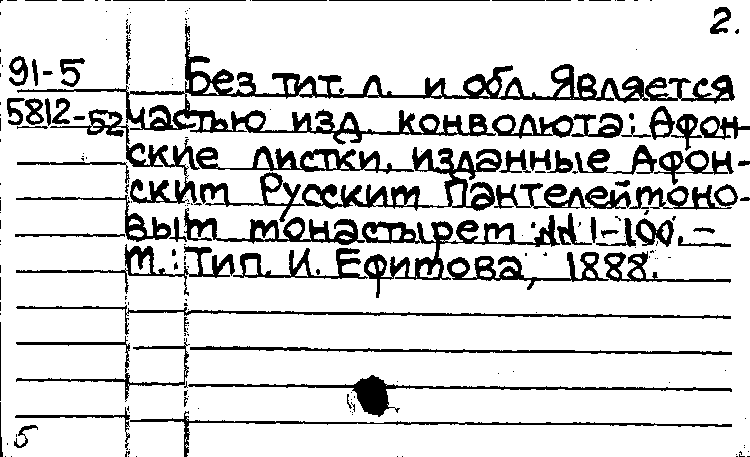 2.
91-5 Без тит. л. и обл. Является
5812-52 частью изд. конволюта: Афон-
ские листки, изданные Афон-
ским Русским Пантелеймоно-
вым монастырем №№ 1-100. –
М.: Тип. И. Ефимова, 1888.
б